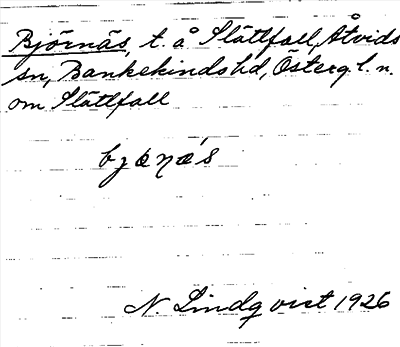 Björnäs, t. å Slättfall, Åtvids
sn, Bankekinds hd, Österg. l. n.
om Slättfall
N. Lindqvist 1926